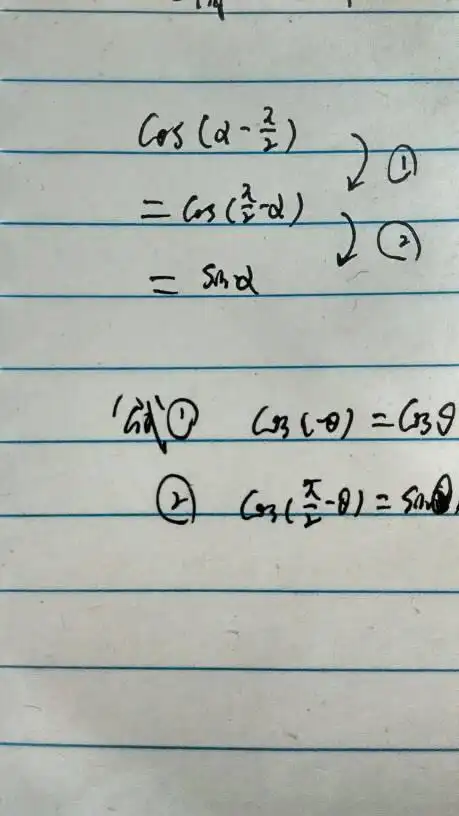 cos(α-π/2) ①
= cos(π/2-α) ②
= sinα
① cos(-θ) = cosθ
② cos(π/2-θ) = sinθ